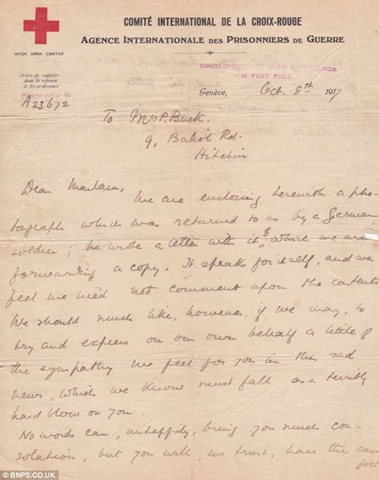 COMITÉ INTERNATIONAL DE LA CROIX-ROUGE
AGENCE INTERNATIONALE DES PRISONNIERS DE GUERRE
INTER ARMA CARITAS
Prière de rappeler
dans la réponse
A23672
IS POST FREE.
Genève, Oct. 8th 1917
To Mrs P. Buck.
9, Rd.
Hitchin
Dear Madam,
We are enclosing herewith a pho-
tograph which was returned to us by a German
soldier; he wrote a letter with it, of which we are
forwarding a copy. It speaks for itself, and we
feel we need not comment upon the contents.
We should much like, however, if we may, to
try and express on our own behalf a little of
the sympathy we feel for you in this sad
news, which we know must fall as a terribly
hard blow on you.
No words can, unhappily, bring you much con-
solation, but you will, we trust, have the com-
fort
© BNPS.CO.UK